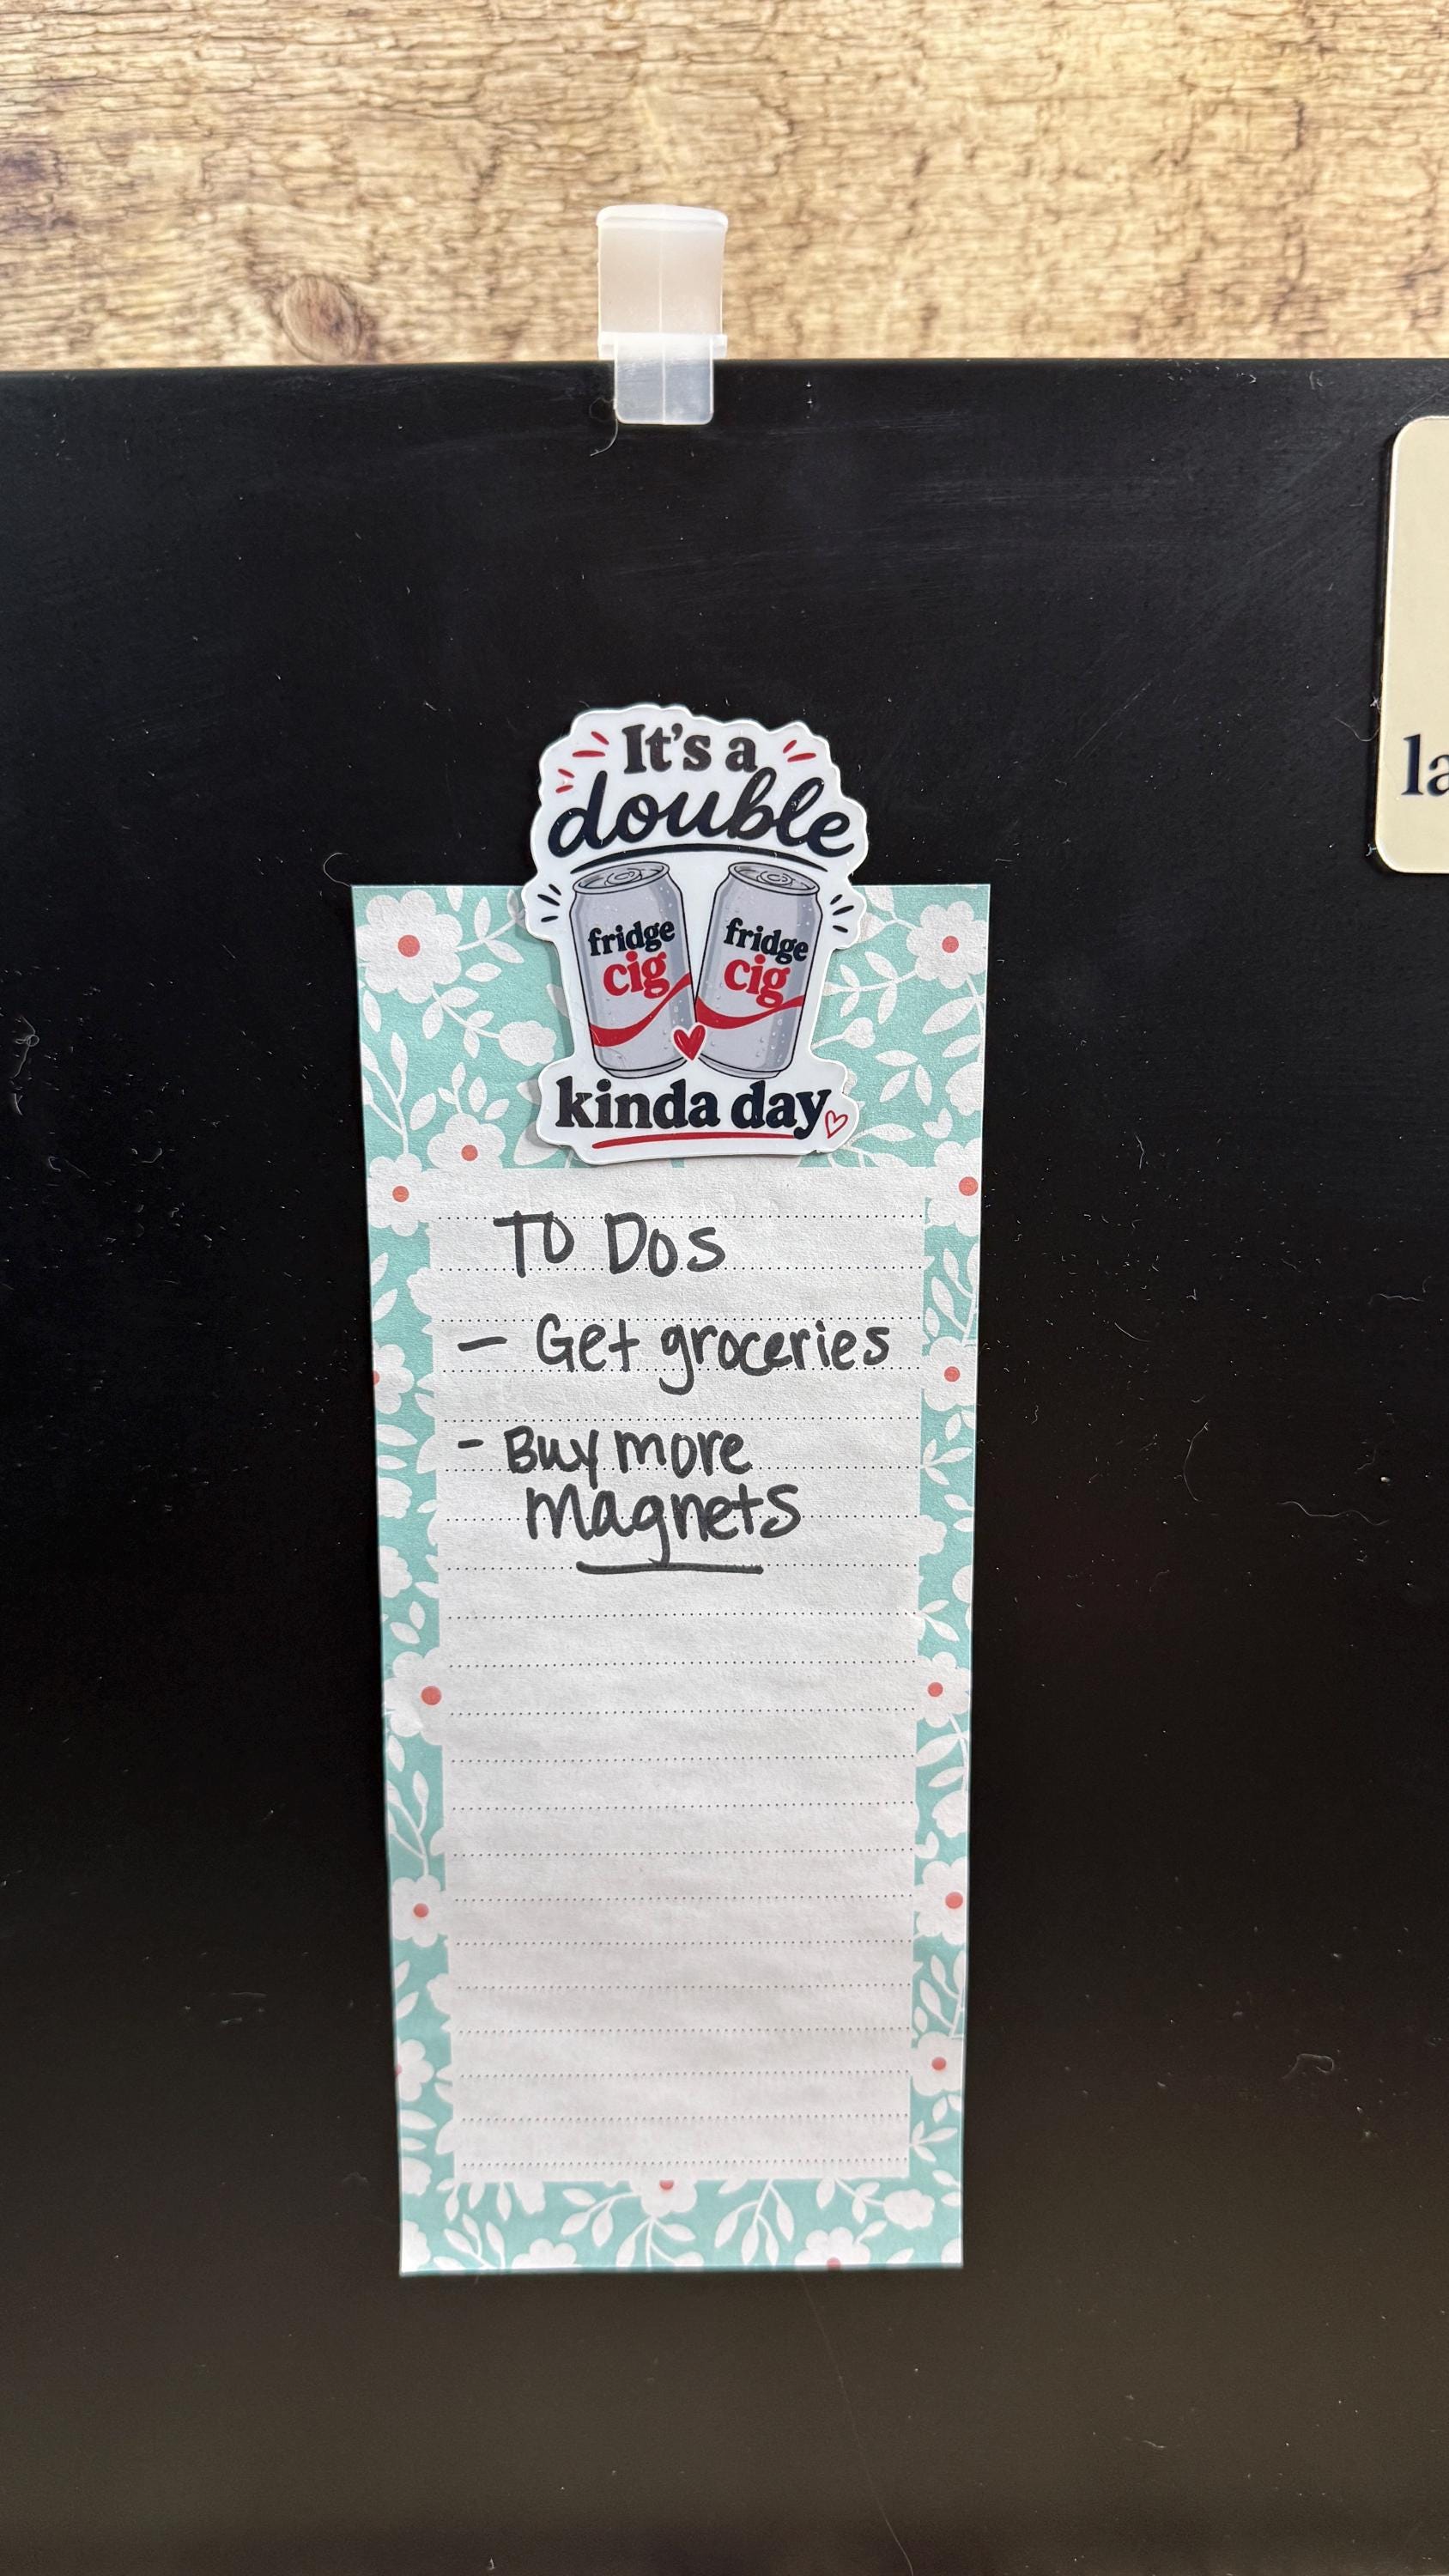 It's a
double
fridge
cig
fridge
cig
kinda day
TO DOS
- Get groceries
- Buy more
magnets
la